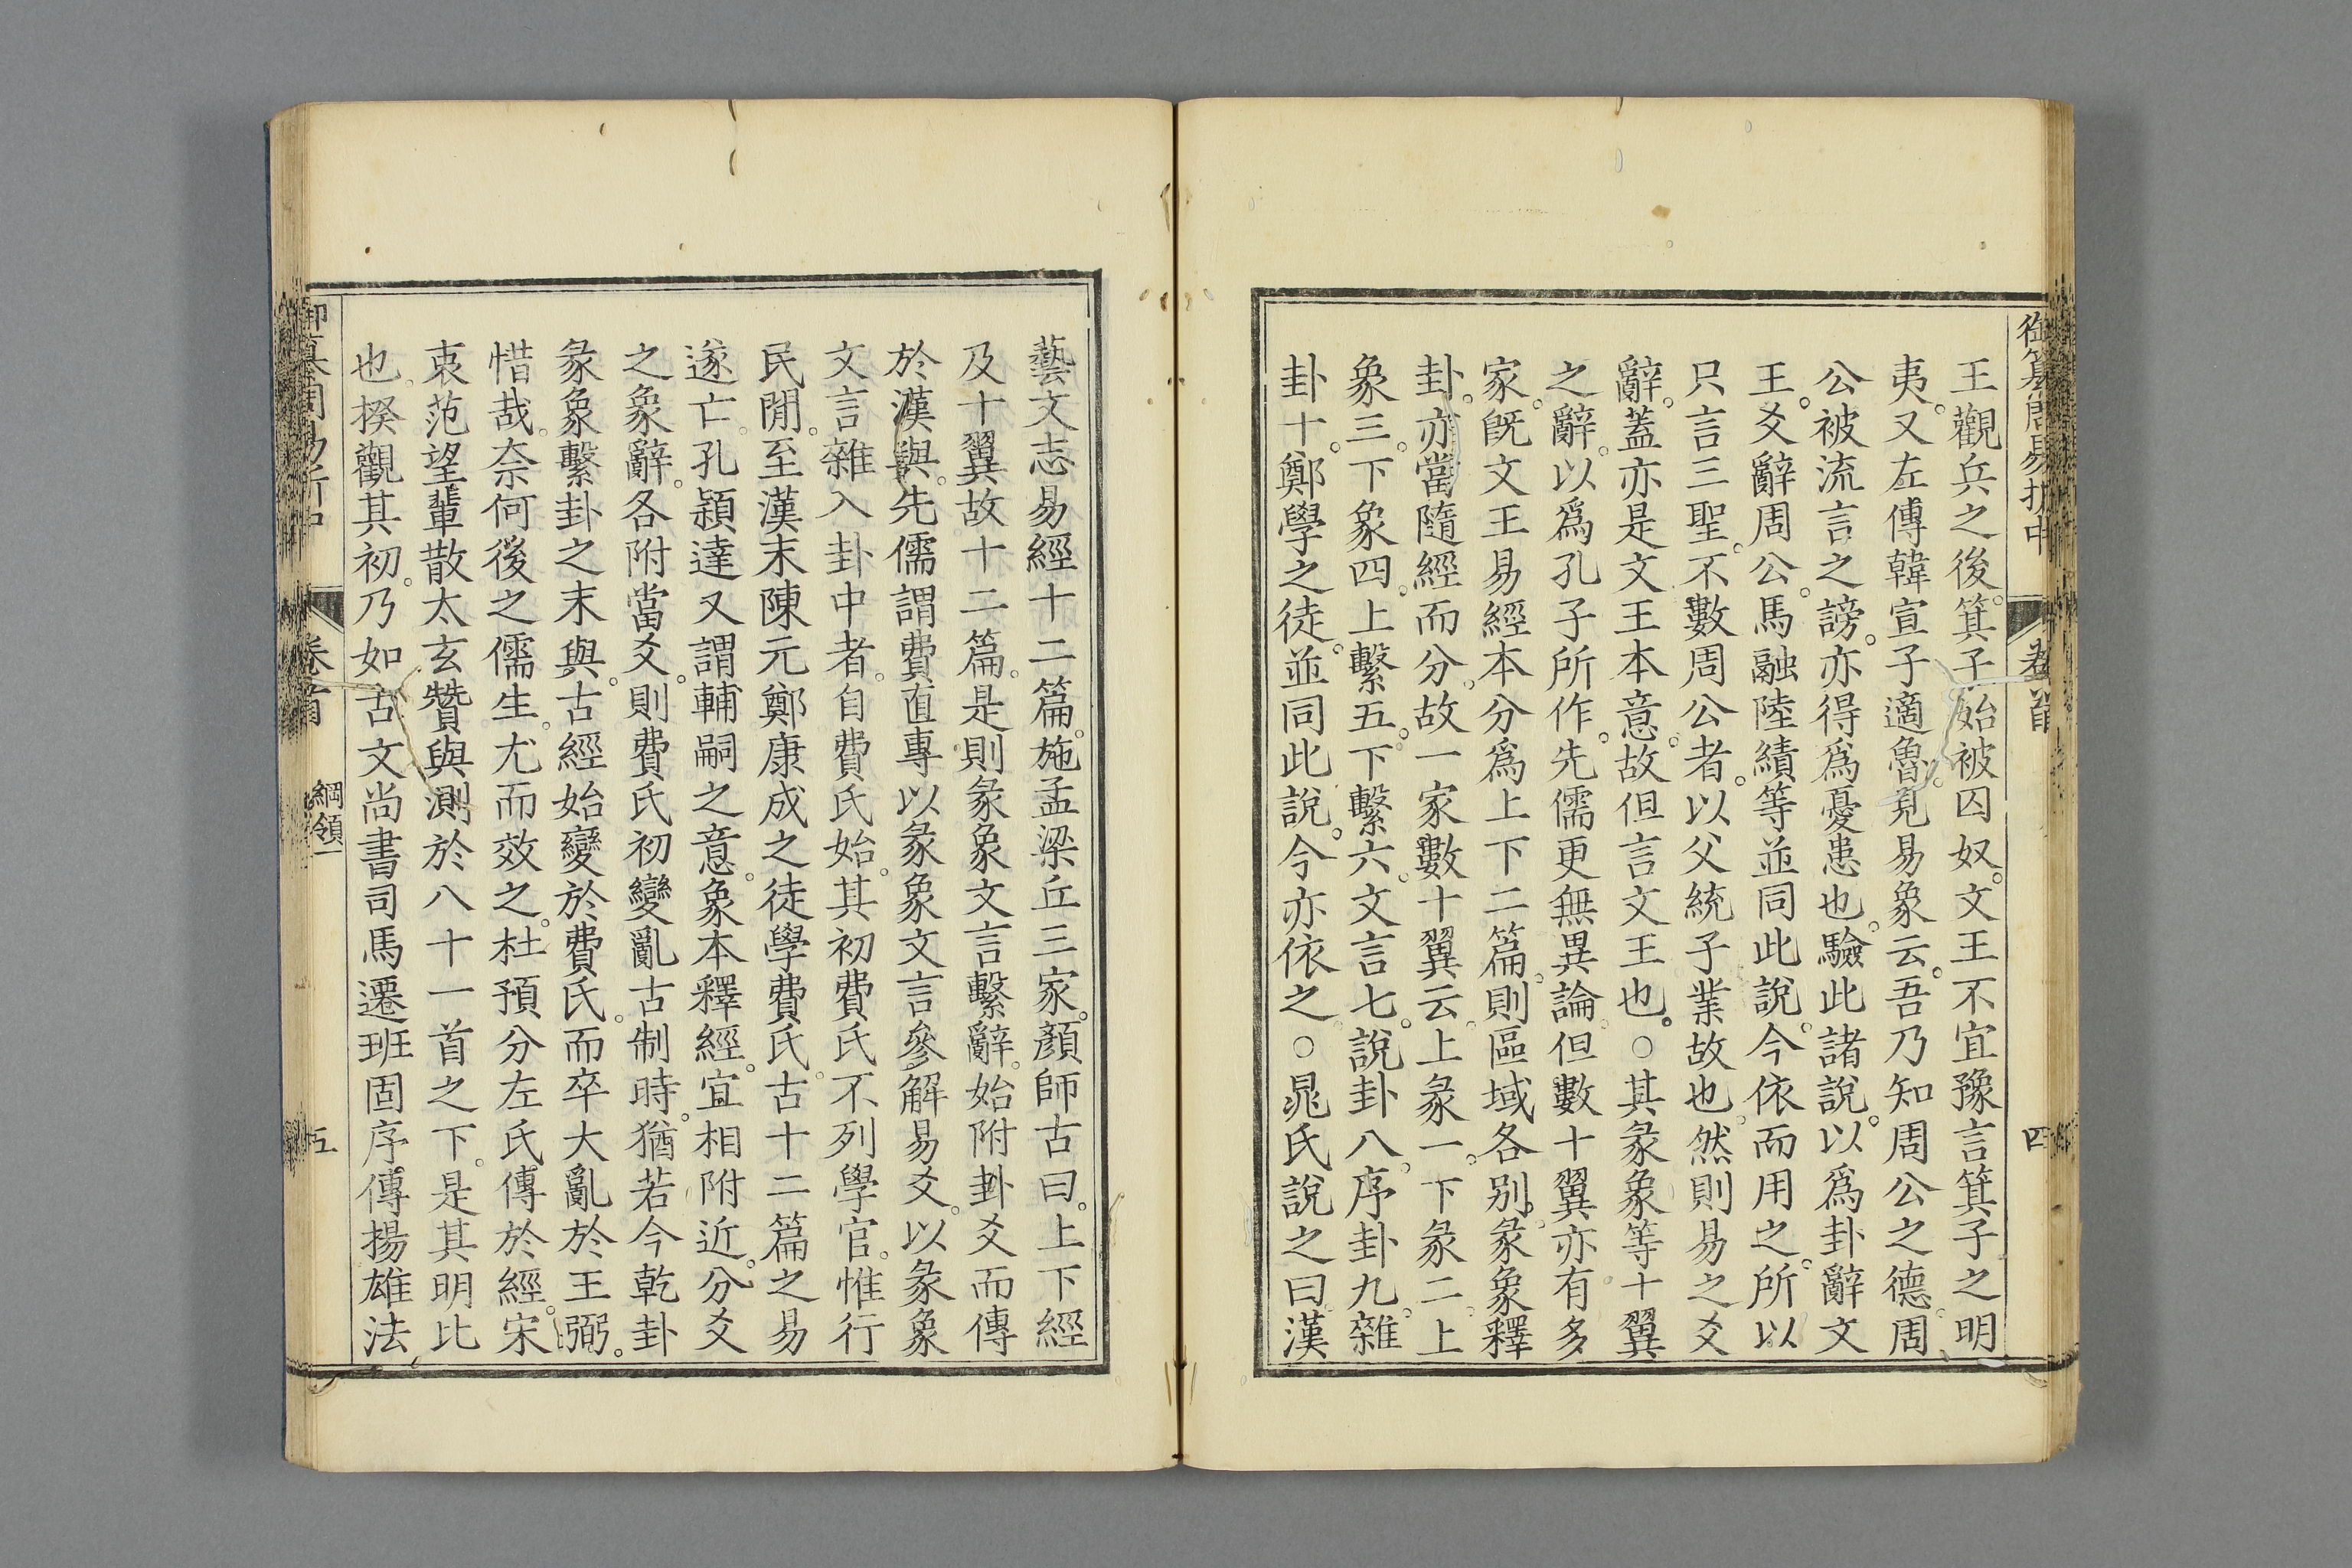 御纂周易折中 卷首 四
王觀兵之後。箕子始被囚奴。文王不宜豫言箕子之明
夷。又左傳韓宣子適魯。見易象云。吾乃知周公之德。周
公被流言之謗。亦得爲憂患也。驗此諸說。以爲卦辭文
王。爻辭周公。馬融陸績等並同此說。今依而用之。所以
只言三聖。不數周公者。以父統子業故也。然則易之爻
辭。蓋亦是文王本意。故但言文王也。○其彖象等十翼
之辭。以爲孔子所作。先儒更無異論。但數十翼亦有多
家。旣文王易經本分爲上下二篇。則區域各別。彖象釋
卦。亦當隨經而分。故一家數十翼云。上彖一。下彖二。上
象三。下象四。上繫五。下繫六。文言七。說卦八。序卦九。雜
卦十。鄭學之徒。並同此說。今亦依之。○晁氏說之曰漢
藝文志易經十二篇。施孟梁丘三家。顏師古曰。上下經
及十翼故十二篇。是則彖象文言繫辭。始附卦爻而傳
於漢與。先儒謂費直專以彖象文言參解易爻。以彖象
文言雜入卦中者。自費氏始。其初費氏不列學官。惟行
民閒。至漢末陳元鄭康成之徒學費氏。古十二篇之易
遂亡。孔穎達又謂輔嗣之意。象本釋經。宜相附近。分爻
之象辭。各附當爻。則費氏初變亂古制時。猶若今乾卦
彖象繫卦之末與。古經始變於費氏。而卒大亂於王弼。
惜哉。奈何後之儒生。尤而效之。杜預分左氏傳於經。宋
衷范望輩散太玄贊與測於八十一首之下。是其明比
也。揆觀其初。乃如古文尚書司馬遷班固序傳揚雄法
御纂周易折中 卷首 綱領一 五